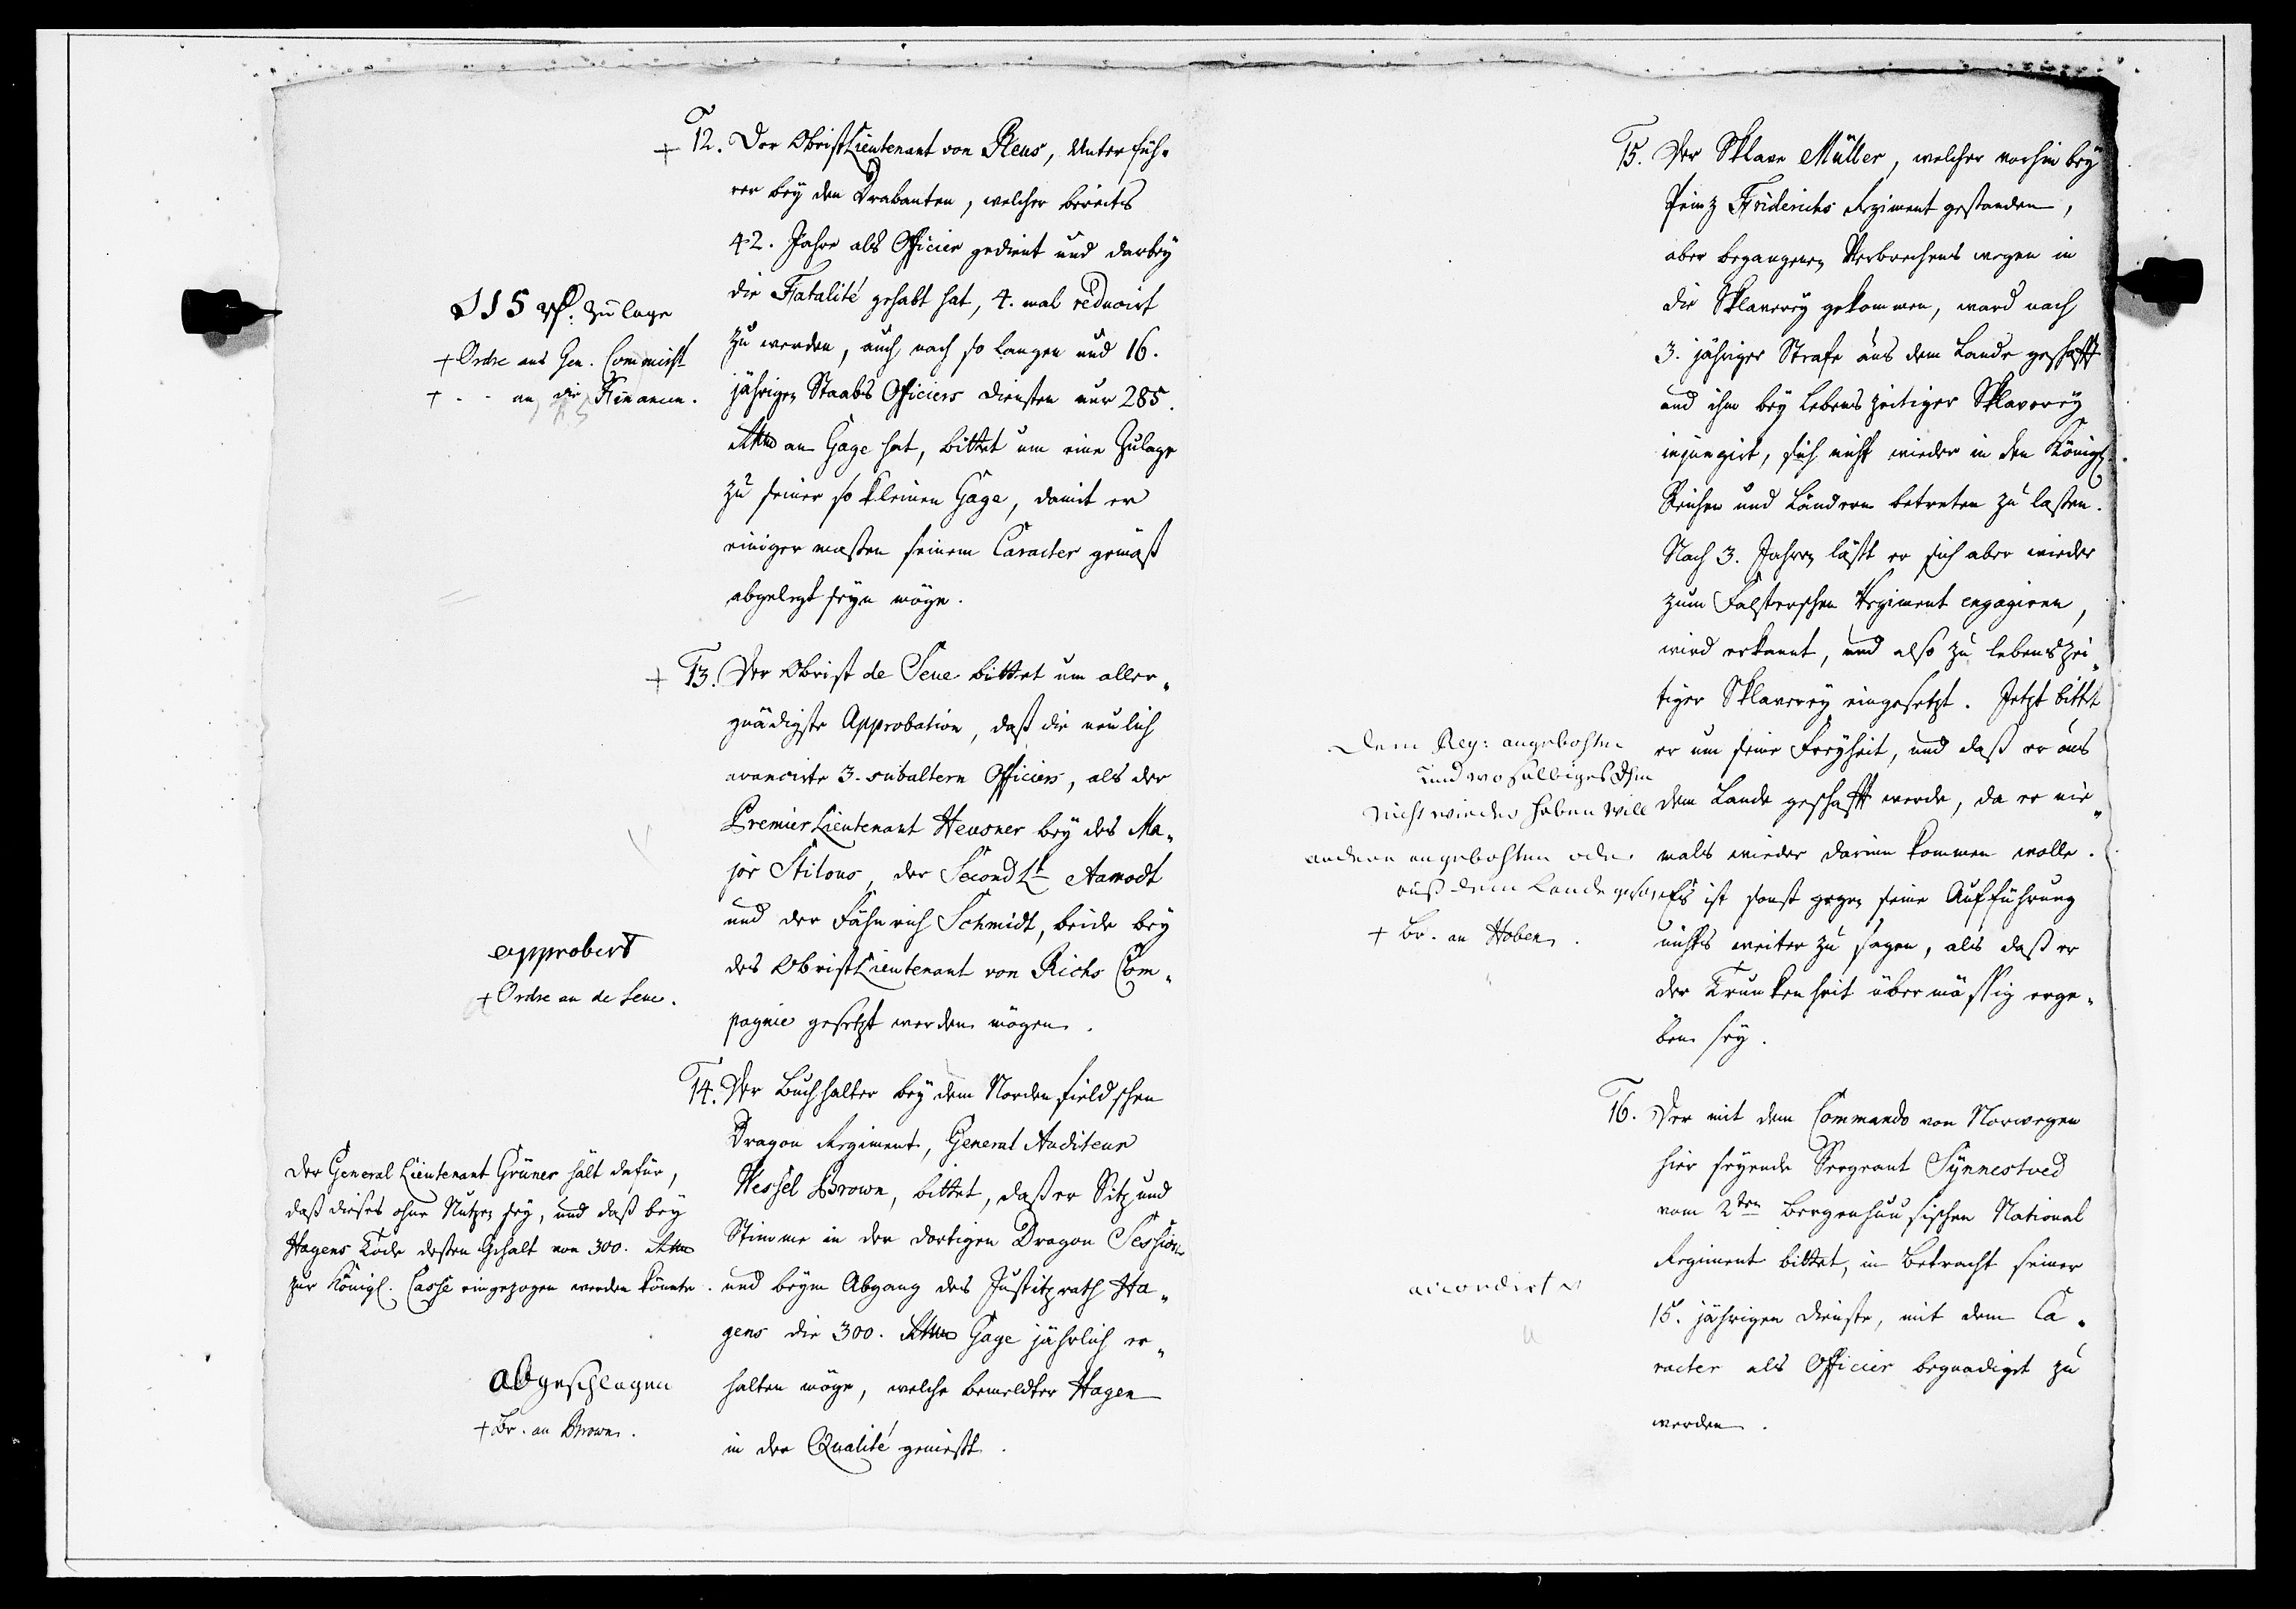 12. Der ObristLieutenant von Reus, Unterfüh-
rer bey den Drabanten, welcher bereits
42. Jahre als Officier gedient und darbey
die Fatalité gehabt hat, 4. mal reducirt
zu werden, auch nach so langen und 16.
jährigen Staabs Officiers diensten nur 285.
Rthlr an Gage hat, bittet um eine Zulage
zu seiner so kleinen Gage, damit er
einiger maßen seinem Caracter gemäß
abgelegt seyn möge.
115 rh: Zulage
+ Ordre ans Gen. Commiss:
+ - - an die Financen.
13. Der Obrist de Seue bittet um aller-
gnädigste Approbation, daß die neulich
avancirte 3. subaltern Officiers, als der
Premier Lieutenant Heusner bey des Ma-
jor Stilous, der Second Lt Aamodt
und der Fähnrich Schmidt, beide bey
des ObristLieutenant von Richs Com-
pagnie gesetzt werden mögen.
approbirt
+ Ordre an de Seue.
14. Der Buchhalter bey dem Nordenfieldschen
Dragon Regiment, General Auditeur
Wessel Brown, bittet, daß er Sitz und
Stimme in der dortigen Dragon Session
und beym Abgang des Justitzrath Ha-
gens die 300. Rthlr Gage jährlich er-
halten möge, welche bemeldter Hagen
in der Qualité genießt.
Der General Lieutenant Grüner hält dafür,
daß dieses ohne Nutzen sey, und daß bey
Hagens Tode deßen Gehalt von 300. Rthlr
zur Königl. Casse eingezogen werden könnte.
abgeschlagen
+ Br. an Brown.
15. Der Sklave Müller, welcher vorhin bey
Prinz Friderichs Regiment gestanden,
aber begangenen Verbrechens wegen in
die Sklaverey gekommen, ward nach
3. jähriger Strafe aus dem Lande geschafft
und ihm bey lebenszeitiger Sklaverey
injungirt, sich nicht wieder in den Königl.
Reichen und Ländern betreten zu laßen.
Nach 3. Jahren läßt er sich aber wieder
zum Falsterschen Regiment engagiren,
wird erkannt, und also zu lebenszei-
tiger Sklaverey eingesetzt. Jetzt bittet
er um seine Freyheit, und daß er aus
dem Lande geschafft werde, da er nie-
mals wieder darinn kommen wolle.
Es ist sonst gegen seine Aufführung
nichts weiter zu sagen, als daß er
der Trunkenheit übermäßig erge-
ben sey.
Dem Reg: angebohten
und wo selbiges Ihn
nicht wieder haben will
andern angebohten oder
auß dem Lande
+ Br. an Hoben.
16. Der mit dem Commando von Norwegen
hier seyende Sergeant Synnestved
vom 2ten Bergenhuusischen National
Regiment bittet, in Betracht seiner
15. jährigen Dienste, mit dem Ca-
racter als Officier begnadigt zu
werden.
accordirt